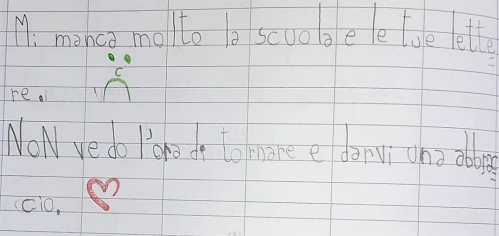 Mi manca molto la scuola e le tue lette=
re.
NoN vedo l'ora di tornare e darvi una abbrac=
cio.